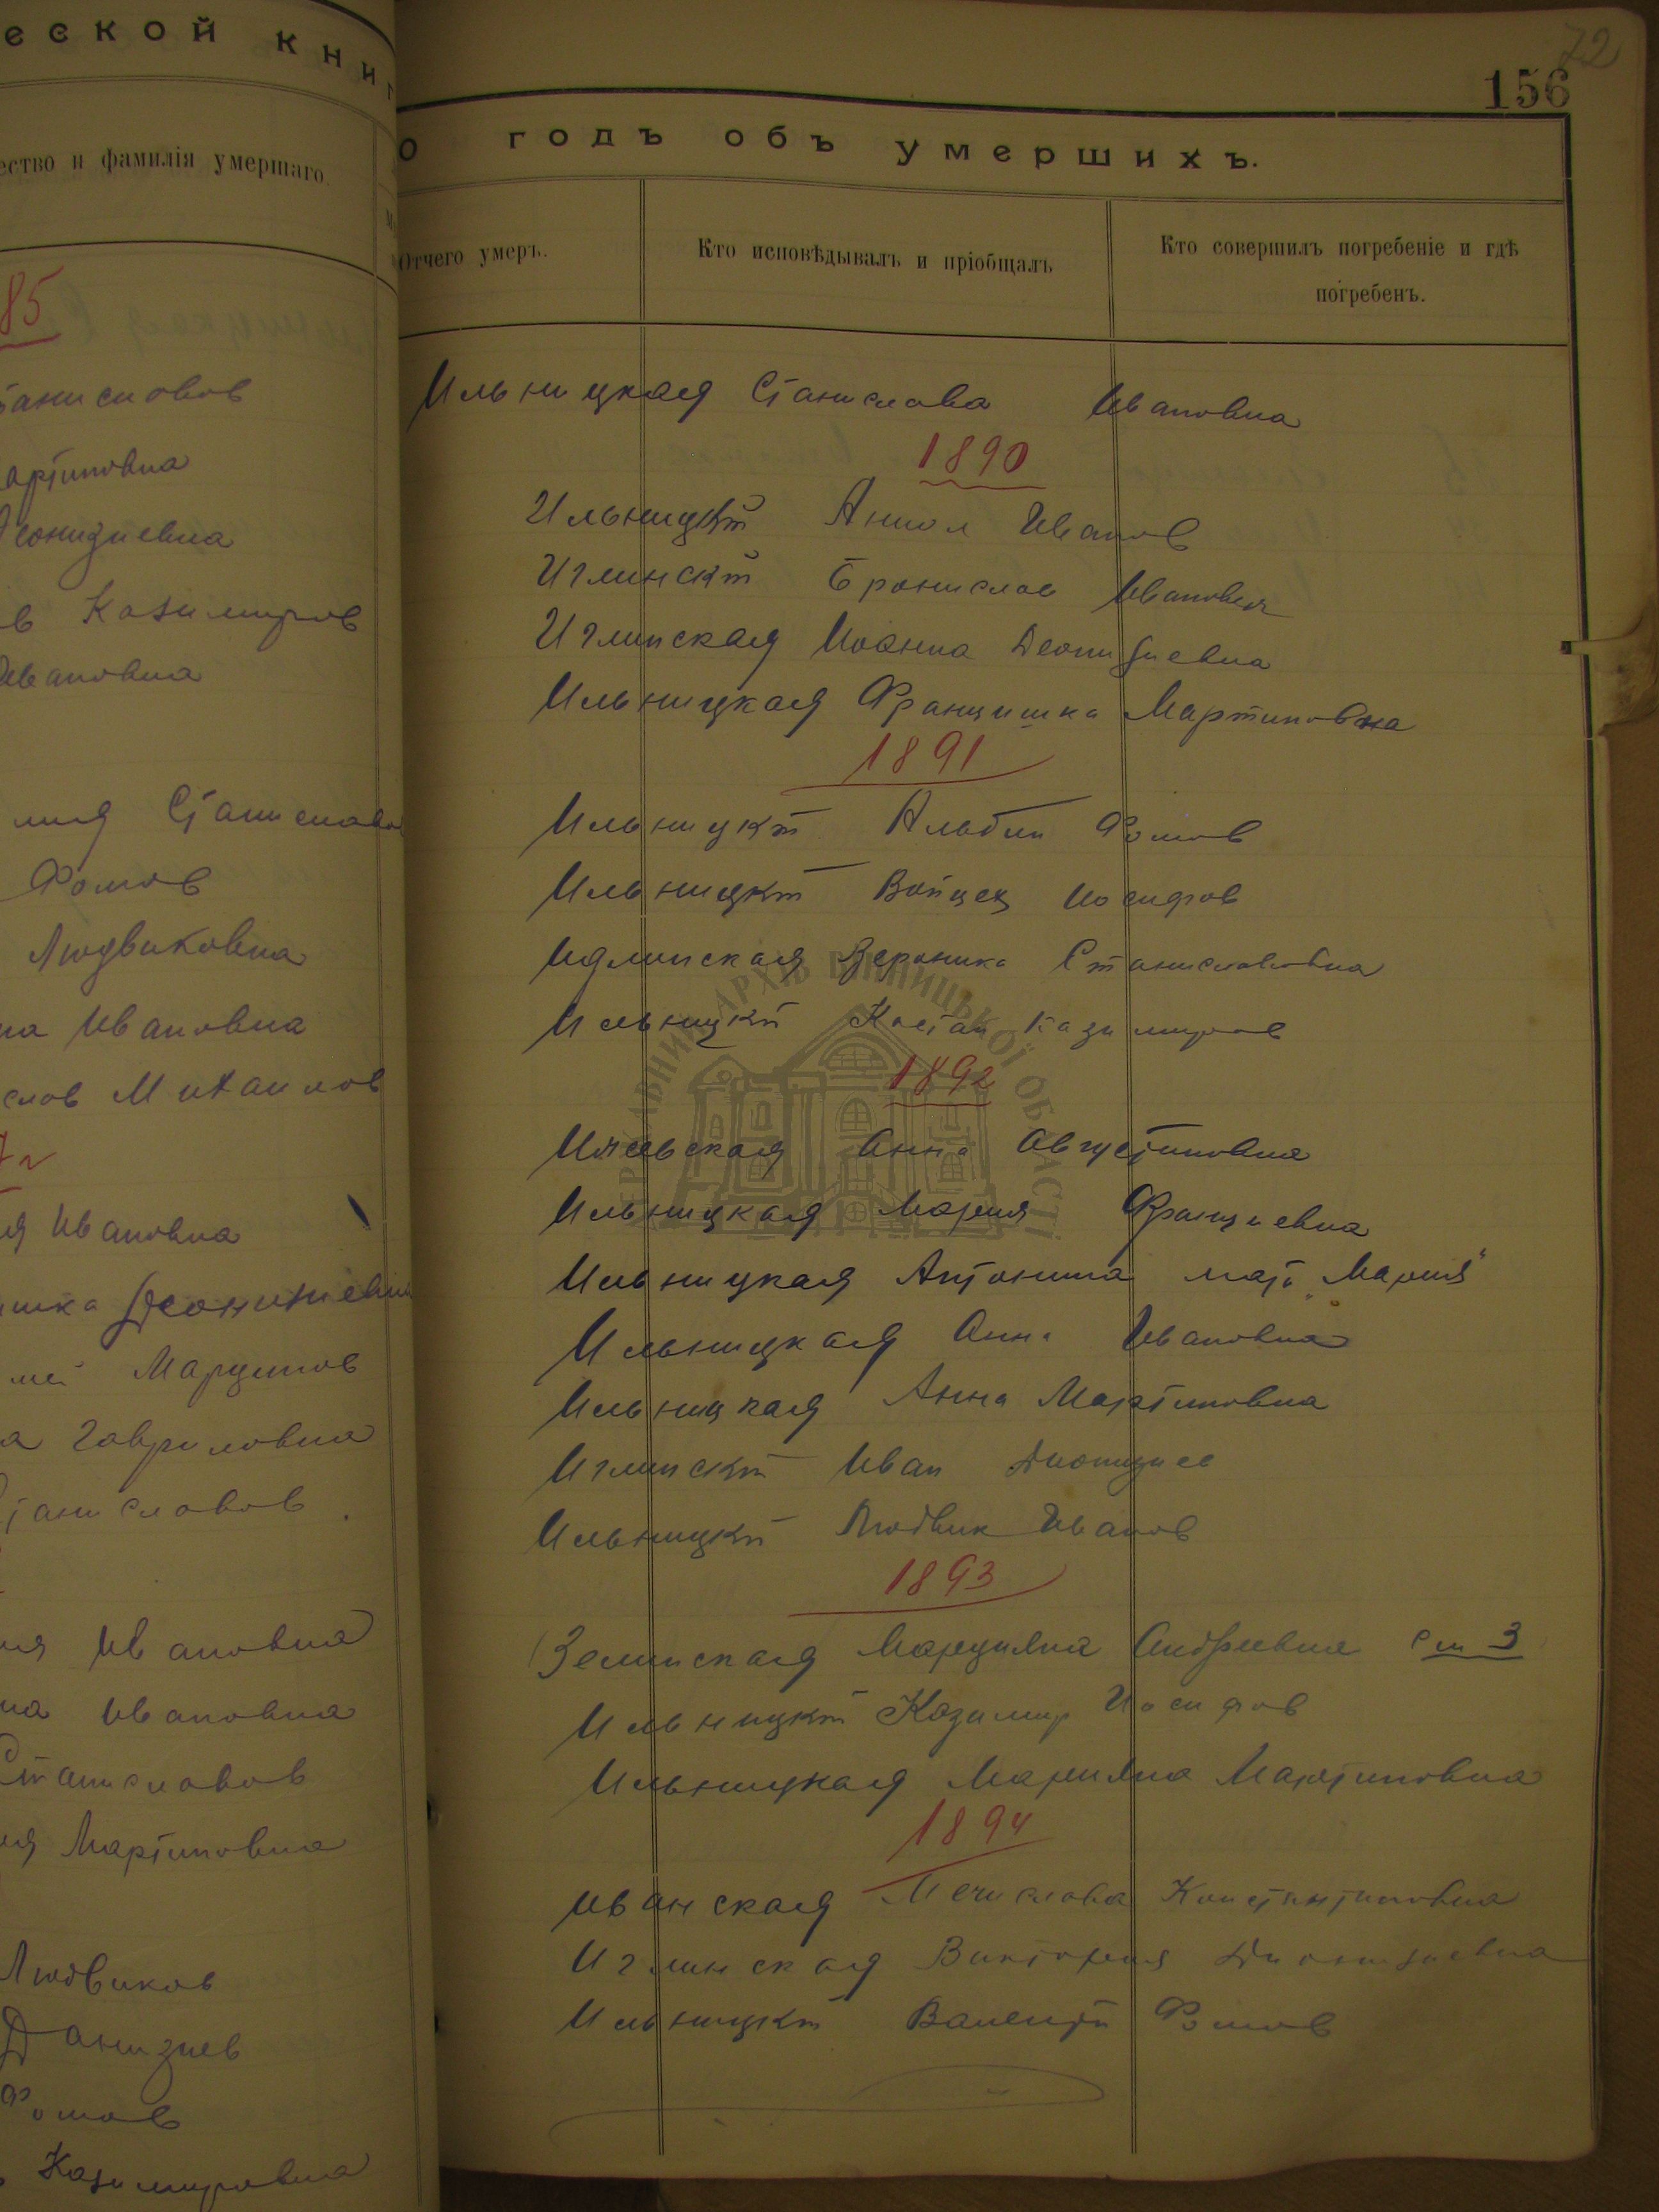 еской книг
ество и фамилія умершаго.
85
Мартиновна
в Казимиров
Ивановна
Станиславов
Фомов
Людвиковна
на Ивановна
слов Михаилов
я Ивановна
Марцинов
а Гавриловна
Станиславов
ия Ивановна
на Ивановна
Станиславов
ия Мартиновна
Людвиков
Данизиев
Фомов
Казимировна
72
156
о годъ объ умершихъ.
Отчего умеръ.
Кто исповѣдывалъ и пріобщалъ
Кто совершилъ погребеніе и гдѣ
погребенъ.
Ильницкая Станислава Ивановна
1890
Ильницкій Антон Иванов
Иглинскій Бронислав Иванович
Иглинская Иоанна Деонизиевна
Ильницкая Францишка Мартиновна
1891
Ильницкій Альбин Фомов
Ильницкій Войцех Иосифов
Иглинская Вероника Станиславовна
Ильницкій Каетан Казимиров
1892
Анна Августиновна
Ильницкая Мария Францевна
Ильницкая Антонина мать "Мария"
Ильницкая Анна Ивановна
Ильницкая Анна Мартиновна
Иглинскій Иван Дионизиев
Ильницкій Людвик Иванов
1893
Зелинская Марцияна Андреевна См 3
Ильницкій Казимир Иосифов
Ильницкая Марияна Мартиновна
1894
Иванская Мечислава Константиновна
Иглинская Виктория Дионизиевна
Ильницкій Валентій Фомов
ДЕРЖАВНИЙ АРХІВ ВІННИЦЬКОЇ ОБЛАСТІ